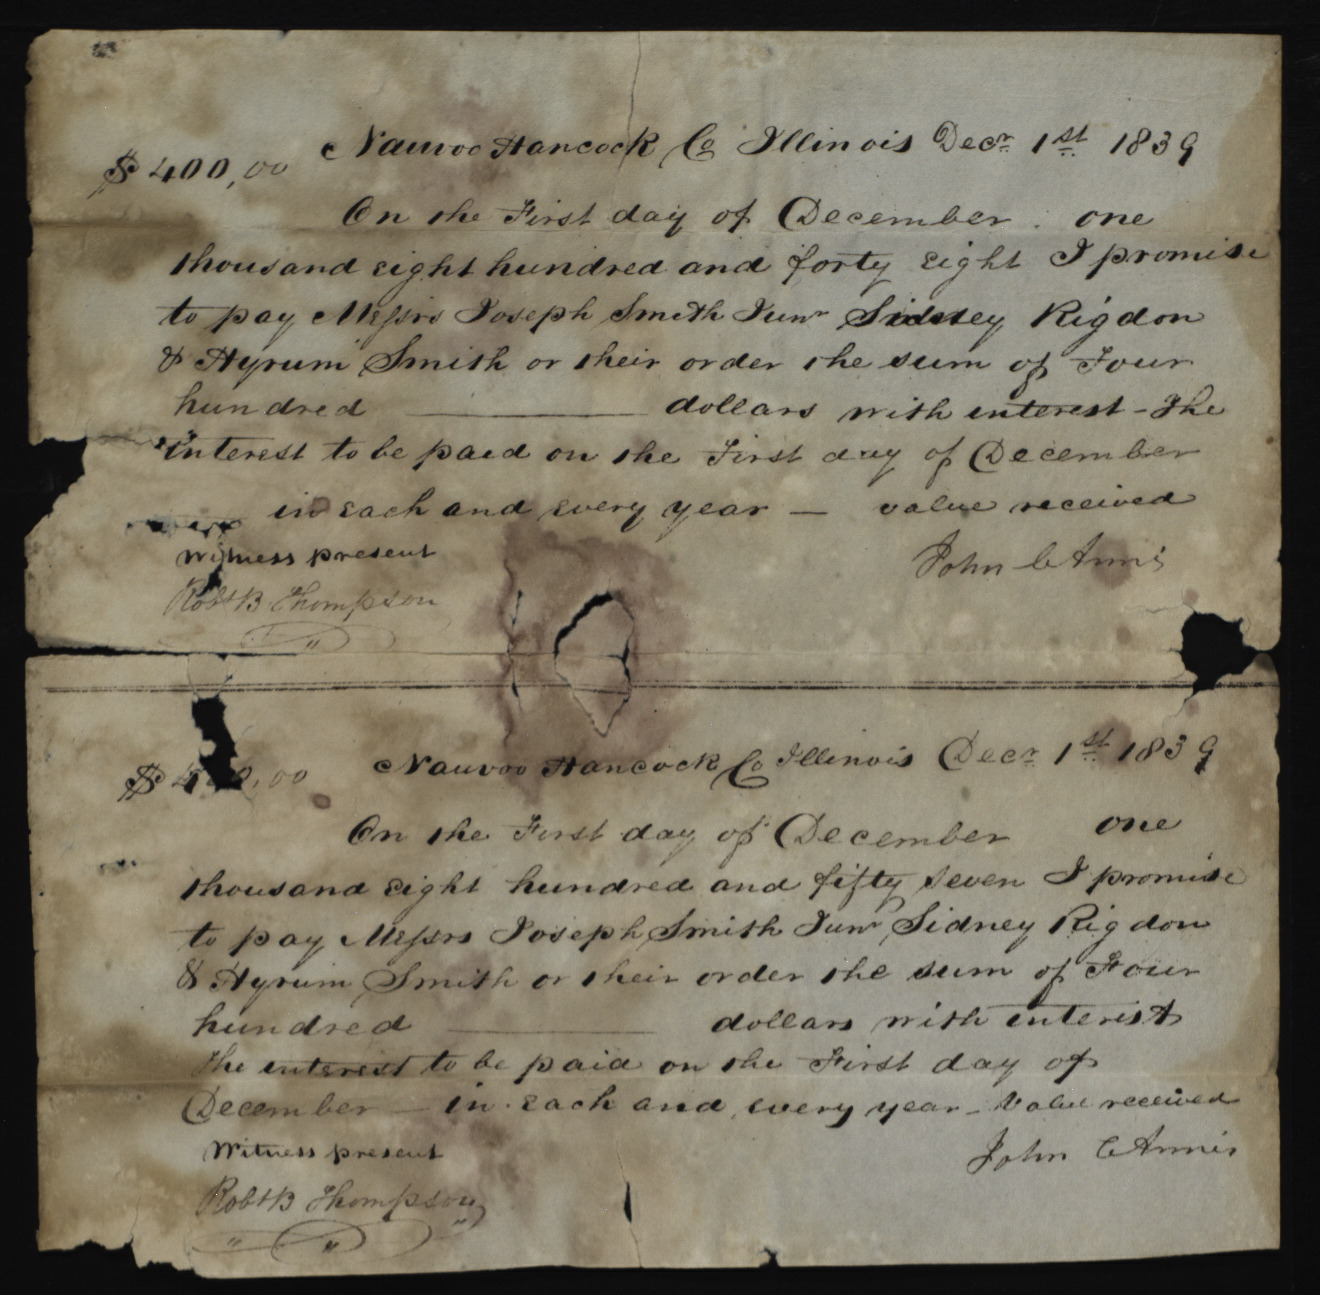 Nauvoo Hancock Co Illinois Decr. 1st 1839
$400,00
On the First day of December one
thousand eight hundred and forty eight I promise
to pay Messrs Joseph Smith Junr Sidney Rigdon
& Hyrum Smith or their order the sum of Four
hundred ——— dollars with interest - The
interest to be paid on the First day of December
in each and every year — value received
Witness present
John C Annis
Robt B Thompson
Nauvoo Hancock Co Illinois Decr. 1st 1839
$ 400,00
On the First day of December one
thousand eight hundred and fifty seven I promise
to pay Messrs Joseph Smith Junr Sidney Rigdon
& Hyrum Smith or their order the sum of Four
hundred ——— dollars with interest
The interest to be paid on the First day of
December — in each and every year - Value received
Witness present
John C Annis
Robt B Thompson